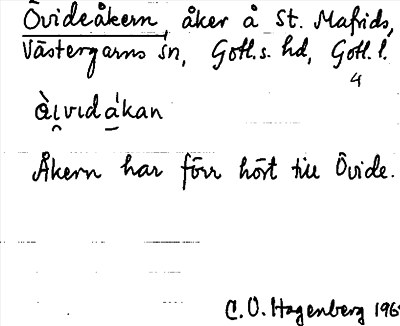 Övideåkern, åker å St. Mafrids,
Västergarns sn, Gotl.s. hd, Gotl. l.
4
Åkern har förr hört till Övide.
C.O. Hagenberg